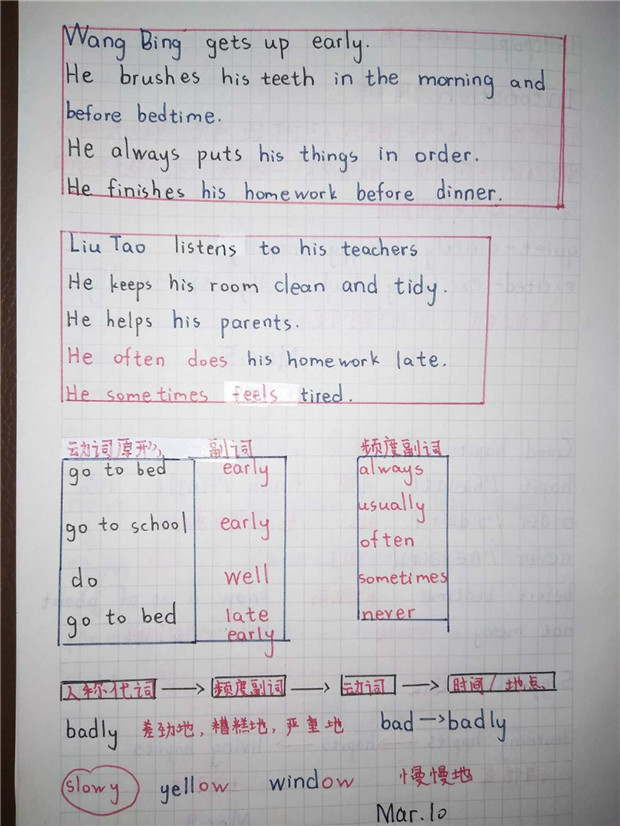 Wang Bing gets up early.
He brushes his teeth in the morning and
before bedtime.
He always puts his things in order.
He finishes his homework before dinner.
Liu Tao listens to his teachers
He keeps his room clean and tidy.
He helps his parents.
He often does his homework late.
He sometimes feels tired.
动词(原形) 副词 频度副词
go to bed early always
usually
go to school early
often
do well sometimes
go to bed late never
early
人称代词 → 频度副词 → 动词 → 时间/地点
badly 差劲地,糟糕地,严重地 bad→badly
slowy yellow window 慢慢地
Mar.10